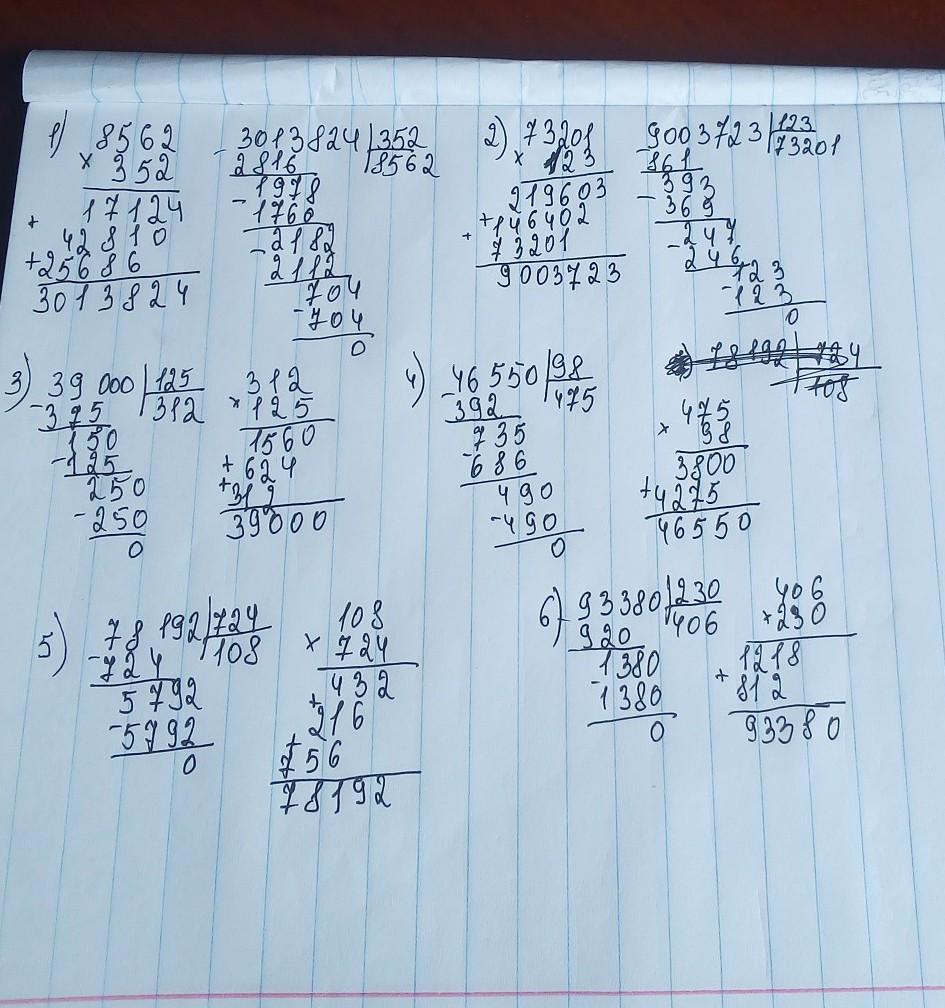 1) 8562
× 352
17124
+ 42810
+ 25686
3013824
- 3013824 | 352
2816 | 8562
1978
- 1760
2182
- 2112
704
- 704
0
2) 73201
× 123
219603
+ 146402
+ 73201
9003723
9003723 | 123
- 861 | 73201
393
- 369
247
- 246
123
- 123
0
3) 39000 | 125
- 375 | 312
150
- 125
250
- 250
0
312
× 125
1560
+ 624
+ 312
39000
4) - 46550 | 98
392 | 475
735
- 686
490
- 490
0
78192 | 724
108
475
× 98
3800
+ 4275
46550
5) 78192 | 724
- 724 | 108
5792
- 5792
0
108
× 724
432
+ 216
+ 756
78192
6) - 93380 | 230
920 | 406
1380
- 1380
0
406
× 230
1218
+ 812
93380